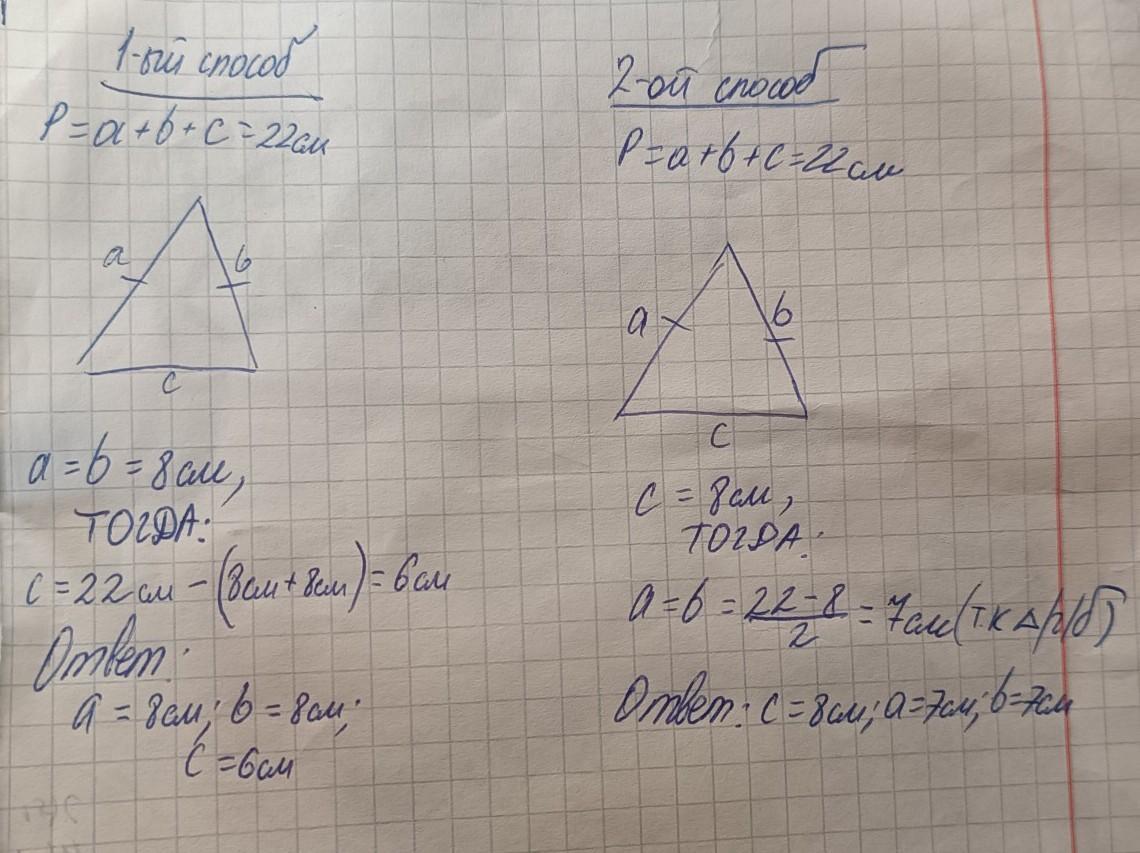 1-ый способ
P=a+b+c=22см
a
b
c
a=b=8см,
ТОГДА:
c=22см-(8см+8см)=6см
Ответ:
a=8см; b=8см;
c=6см
2-ой способ
P=a+b+c=22см
a
b
c
c=8см,
ТОГДА:
a=b=22-8/2=7см(тк △р/б)
Ответ: c=8см; a=7см; b=7см